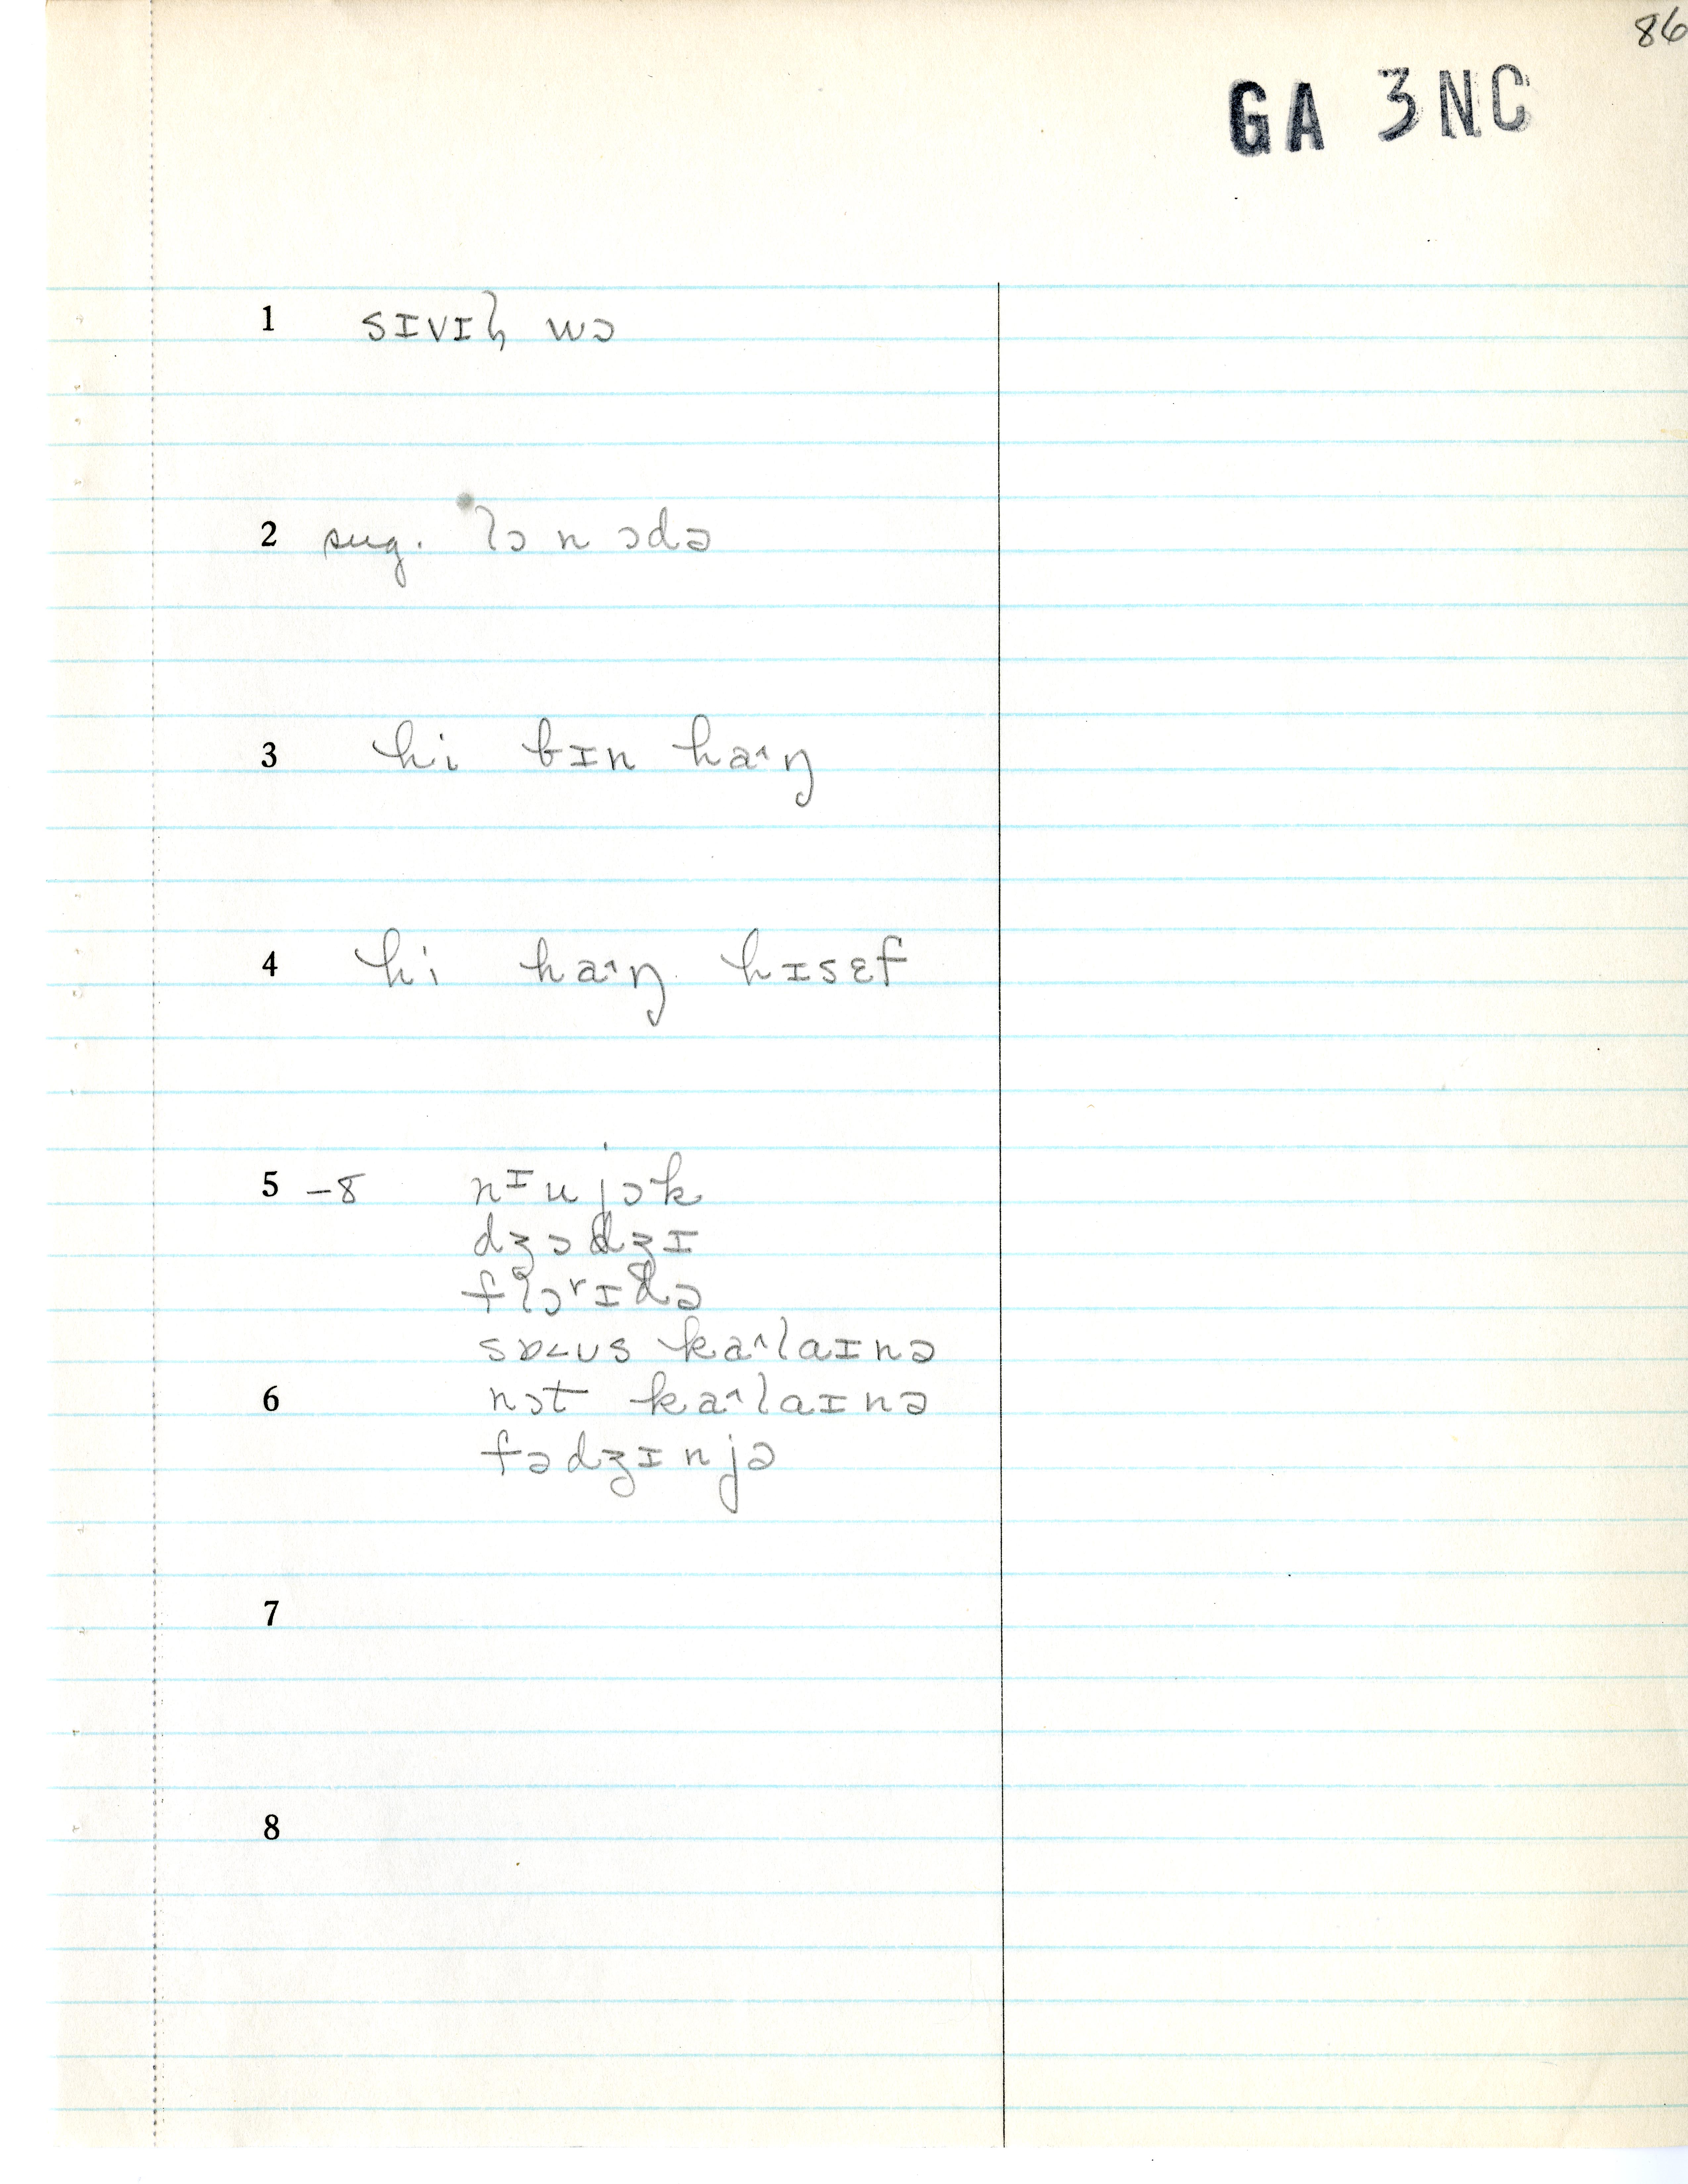 86
GA 3NC
1 sɪvɪl̩ wɔ
2 sug. lɔ n ɔdə
3 hi bɪn ha˄ŋ
4 hi ha˄ŋ hɪsɛf
5 -8 nɪu jɔk
dʒɔdʒɪ
flɔrɪdə
sɒ˂ʊs ka˄laɪnə
6 nɔt ka˄laɪnə
fədʒɪnjə
7
8